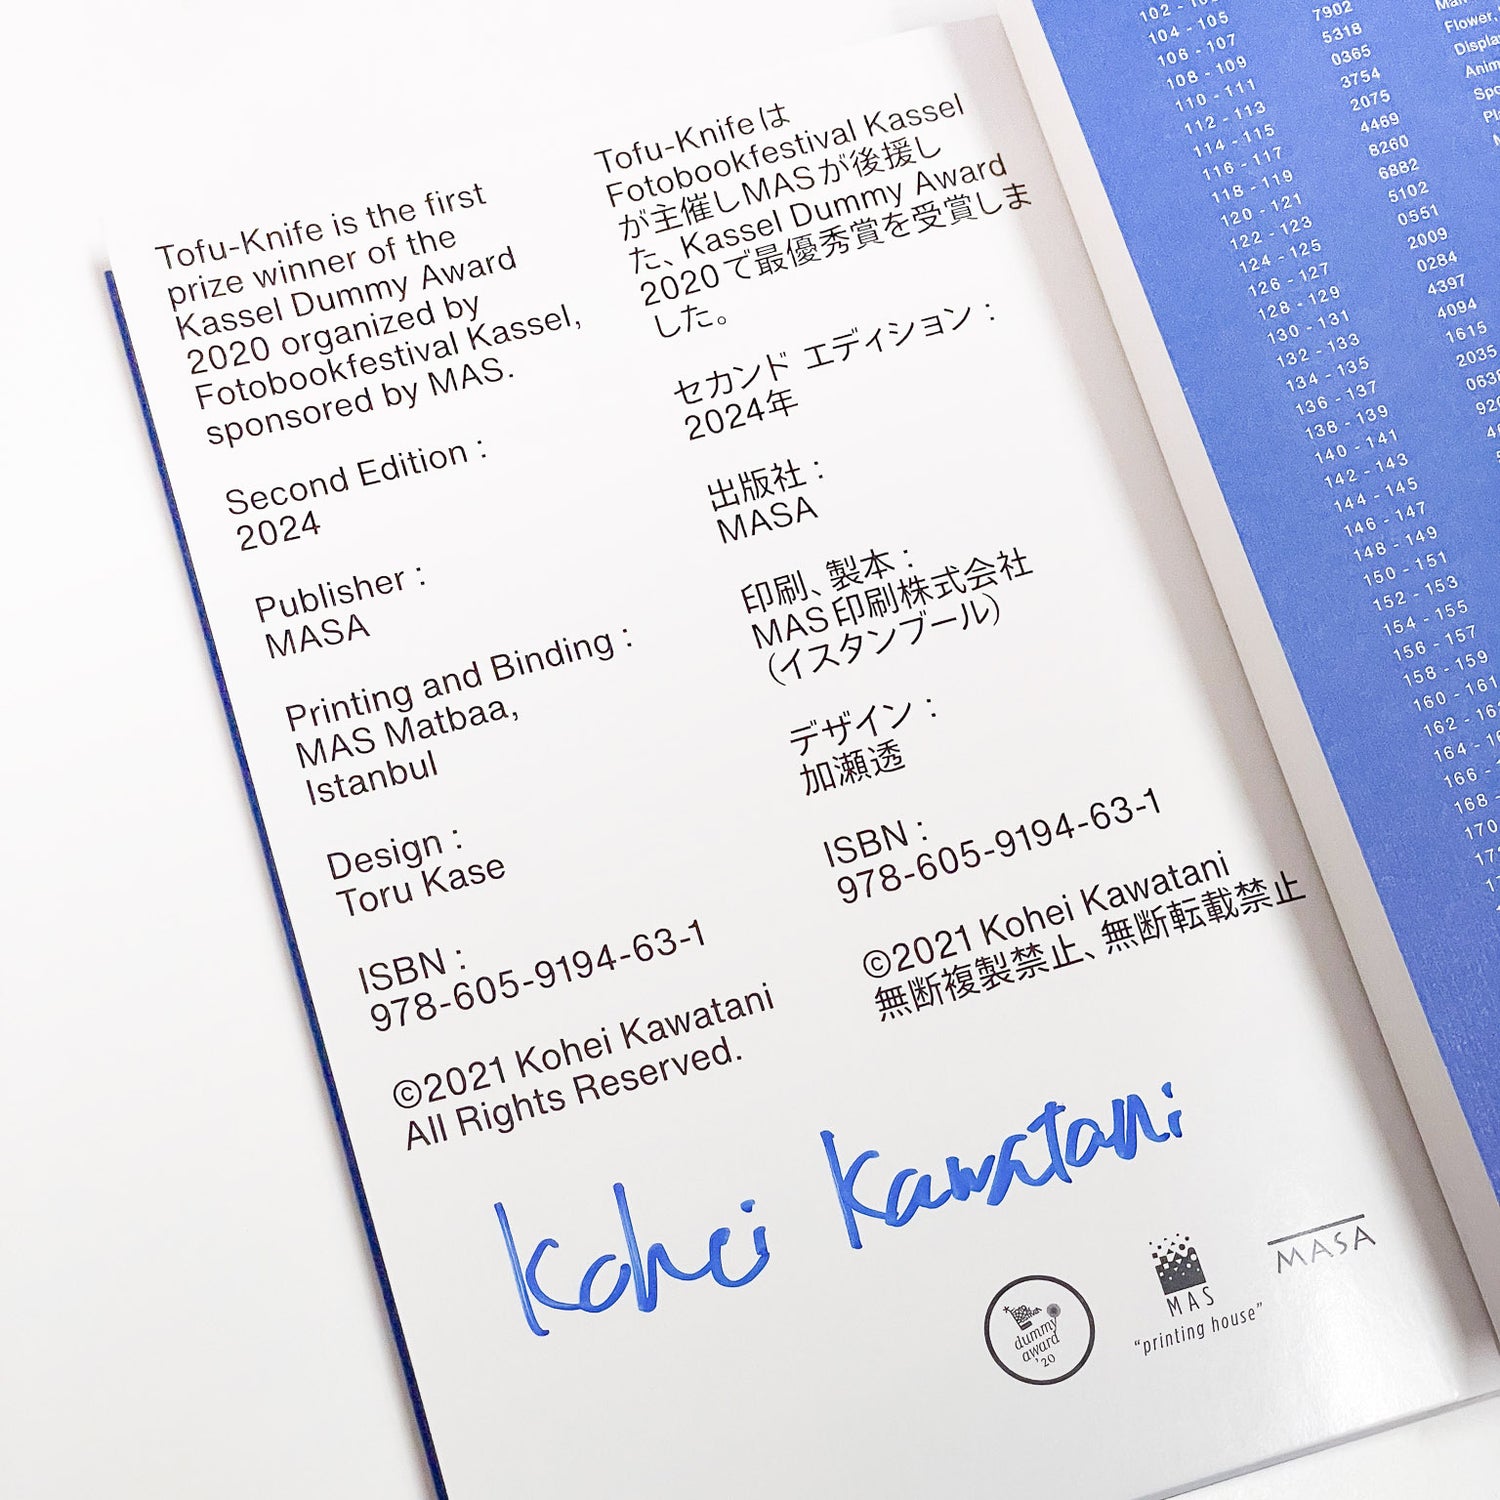 Tofu-Knife is the first
prize winner of the
Kassel Dummy Award
2020 organized by
Fotobookfestival Kassel,
sponsored by MAS.
Second Edition :
2024
Publisher :
MASA
Printing and Binding :
MAS Matbaa,
Istanbul
Design :
Toru Kase
ISBN :
978-605-9194-63-1
©2021 Kohei Kawatani
All Rights Reserved.
Tofu-Knifeは
Fotobookfestival Kassel
が主催しMASが後援し
た、Kassel Dummy Award
2020で最優秀賞を受賞しま
した。
セカンド エディション :
2024年
出版社 :
MASA
印刷、製本 :
MAS印刷株式会社
（イスタンブール）
デザイン :
加瀬透
ISBN :
978-605-9194-63-1
©2021 Kohei Kawatani
無断複製禁止、無断転載禁止
Kohei Kawatani
dummy
award
'20
MAS
"printing house"
MASA
104 - 105
106 - 107
108 - 109
110 - 111
112 - 113
114 - 115
116 - 117
118 - 119
120 - 121
122 - 123
124 - 125
126 - 127
128 - 129
130 - 131
132 - 133
134 - 135
136 - 137
138 - 139
140 - 141
142 - 143
144 - 145
146 - 147
148 - 149
150 - 151
152 - 153
154 - 155
156 - 157
158 - 159
160 - 161
7902
5318
0365
3754
2075
4469
8260
6882
5102
0551
2009
0284
4397
4094
1615
2035
Flower,